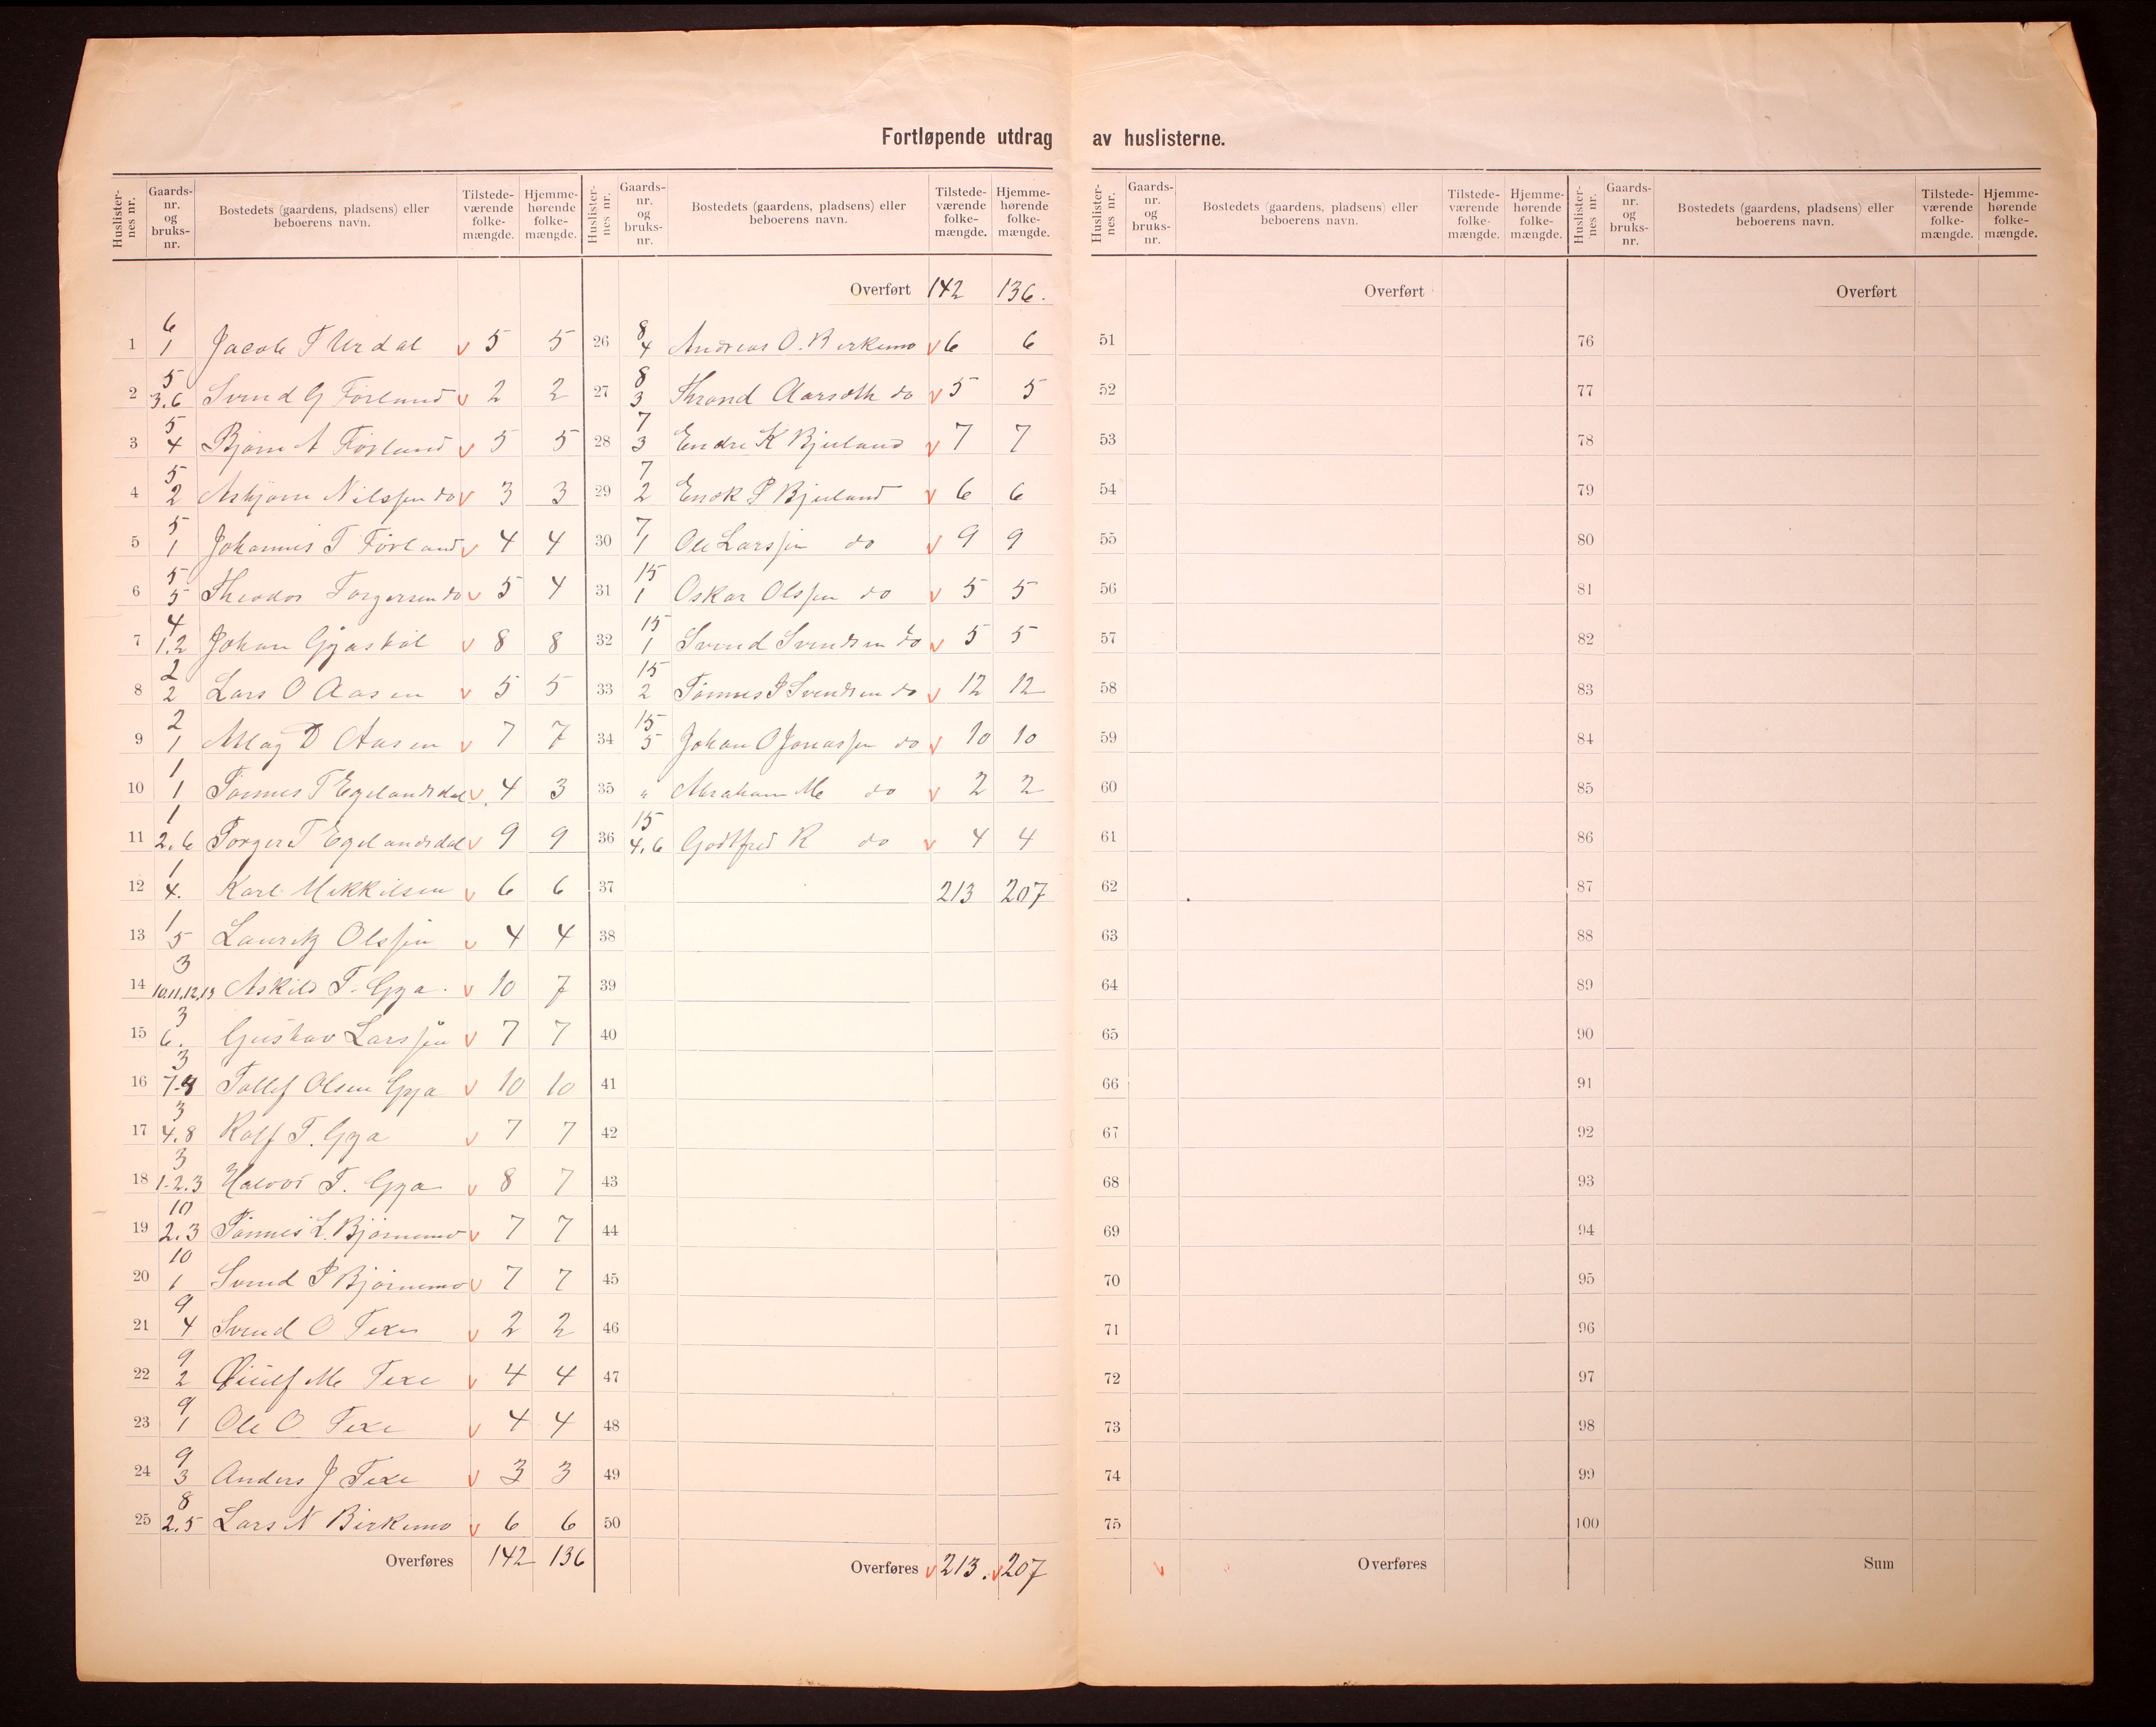 Fortløpende utdrag av huslisterne.
Huslisternes nr. Gaards-nr. og bruks-nr. Bostedets (gaardens, pladsens) eller beboerens navn. Tilstedeværende folkemængde. Hjemmehørende folkemængde.
1 6/1 Jacob T Urdal v 5 5
2 5/3.6 Svend G Førland v 2 2
3 5/4 Bjørn A Førland v 5 5
4 5/2 Asbjørn Nilssen do v 3 3
5 5/1 Johannes T Førland v 4 4
6 5/5 Theodor Torgersen do v 5 4
7 4/1.2 Johan v 8 8
8 2/2 Lars O Aasen v 5 5
9 2/1 D Aasen v 7 7
10 1/1 Tønnes T Egelandsdal v 4 3
11 1/2.6 Torger T Egelandsdal v 9 9
12 1/4. Karl Mikkelsen v 6 6
13 1/5 Lauritz Olssen v 4 4
14 3/10.11.12.13 Askild T. Gya. v 10 7
15 3/6. Gustav Larssen v 7 7
16 3/7-9 Tollef Olsen Gya v 10 10
17 3/4.8 Rolf T. Gya v 7 7
18 3/1-2.3 Halvor T. Gya v 8 7
19 10/2.3 Tønnes L. Bjørnemo v 7 7
20 10/1 Svend P Bjørnemo v 7 7
21 9/4 Svend O Texe v 2 2
22 9/2 M Texe v 4 4
23 9/1 Ole O Texe v 4 4
24 9/3 Anders J Texe v 3 3
25 8/2.5 Lars N Birkemo v 6 6
Overføres 142 136
Huslisternes nr. Gaards-nr. og bruks-nr. Bostedets (gaardens, pladsens) eller beboerens navn. Tilstedeværende folkemængde. Hjemmehørende folkemængde.
Overført 142 136.
26 8/4 Andreas O. Birkemo v 6 6
27 8/3 Thrond do v 5 5
28 7/3 Endre K Bjuland v 7 7
29 7/2 Enok P Bjuland v 6 6
30 7/1 Ole Larssen do v 9 9
31 15/1 Oskar Olssen do v 5 5
32 15/1 Svend Svendsen do v 5 5
33 15/2 Tønnes S Svendsen do v 12 12
34 15/5 Johan O Jonassen do v 10 10
35 " Abraham M do v 2 2
36 15/4.6 Godtfred R do v 4 4
37 213 207
38
39
40
41
42
43
44
45
46
47
48
49
50
Overføres v 213. v 207
Huslisternes nr. Gaards-nr. og bruks-nr. Bostedets (gaardens, pladsens) eller beboerens navn. Tilstedeværende folkemængde. Hjemmehørende folkemængde.
Overført
51
52
53
54
55
56
57
58
59
60
61
62
63
64
65
66
67
68
69
70
71
72
73
74
75
v Overføres
Huslisternes nr. Gaards-nr. og bruks-nr. Bostedets (gaardens, pladsens) eller beboerens navn. Tilstedeværende folkemængde. Hjemmehørende folkemængde.
Overført
76
77
78
79
80
81
82
83
84
85
86
87
88
89
90
91
92
93
94
95
96
97
98
99
100
Sum